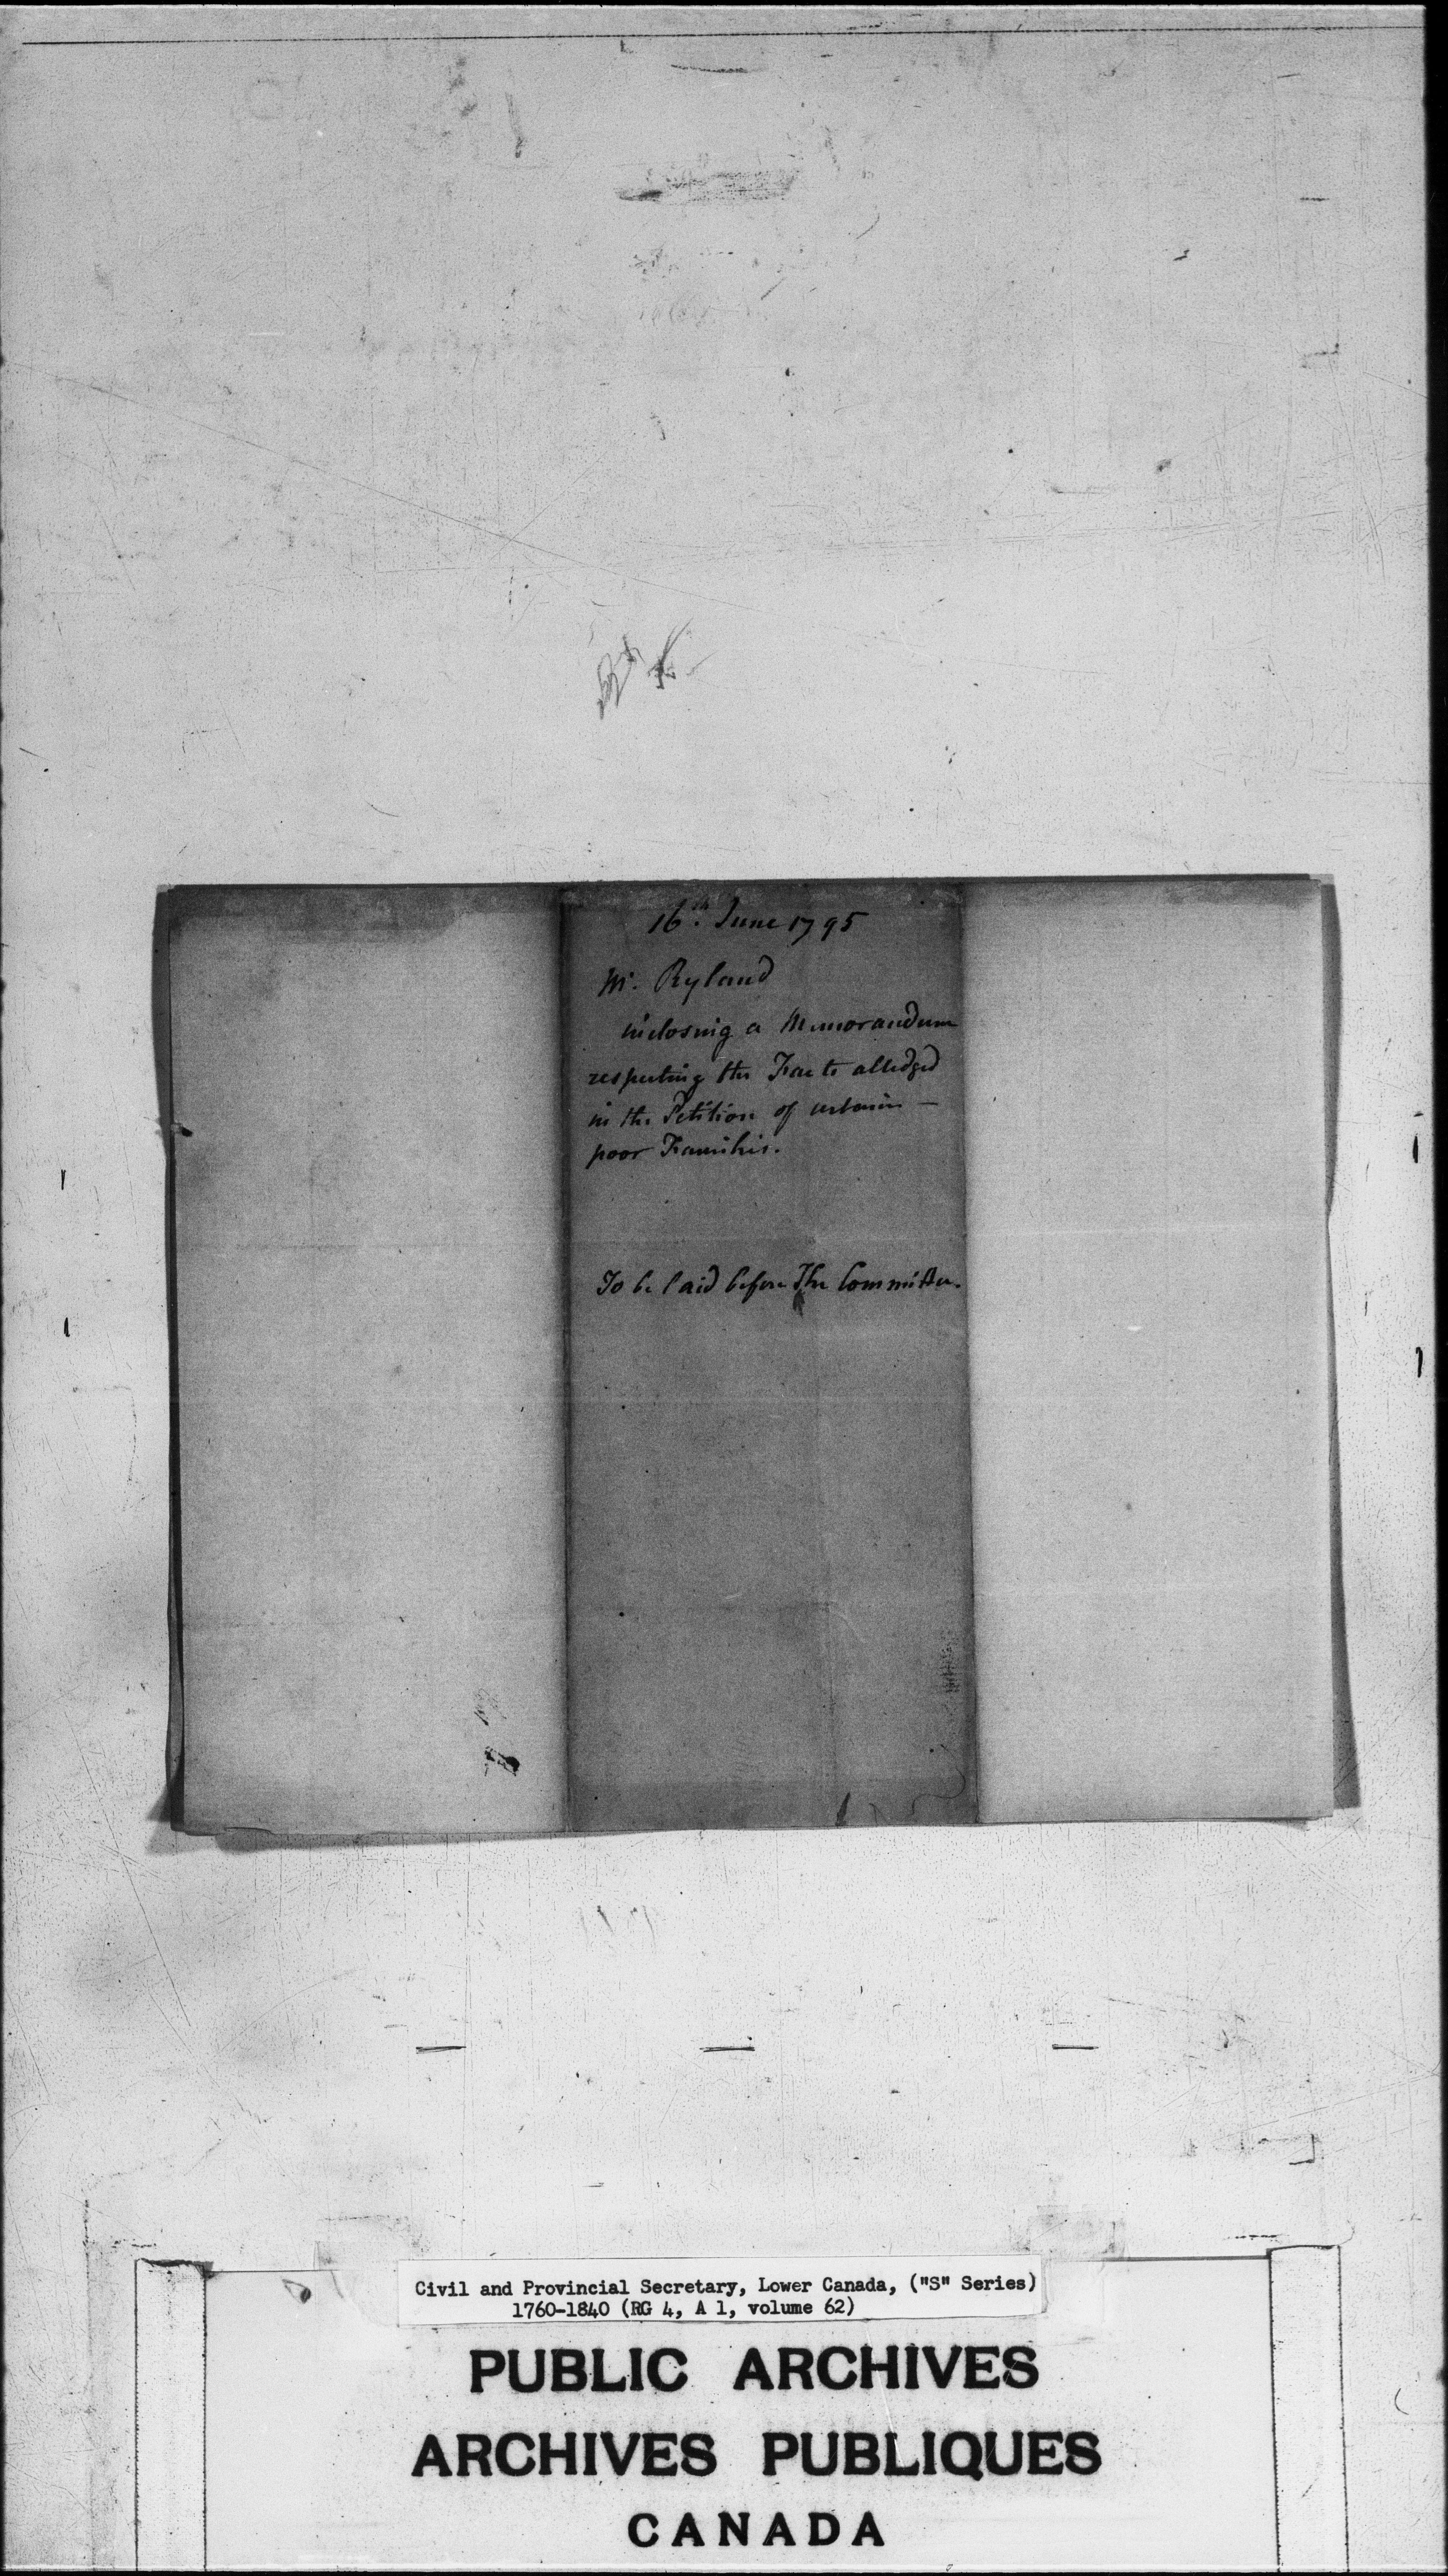 16th. June 1795
Mr. Ryland
inclosing a Memorandum
respecting the Facts alledged
in the Petition of certain —
poor Families.
To be laid before The Committee.
Civil and Provincial Secretary, Lower Canada, ("S" Series)
1760-1840 (RG 4, A 1, volume 62)
PUBLIC ARCHIVES
ARCHIVES PUBLIQUES
CANADA